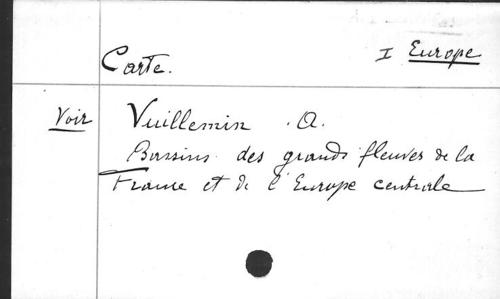 I Europe
Carte.
Voir Vuillemin . A.
Bassins des grands fleuves de la
France et de l'Europe centrale